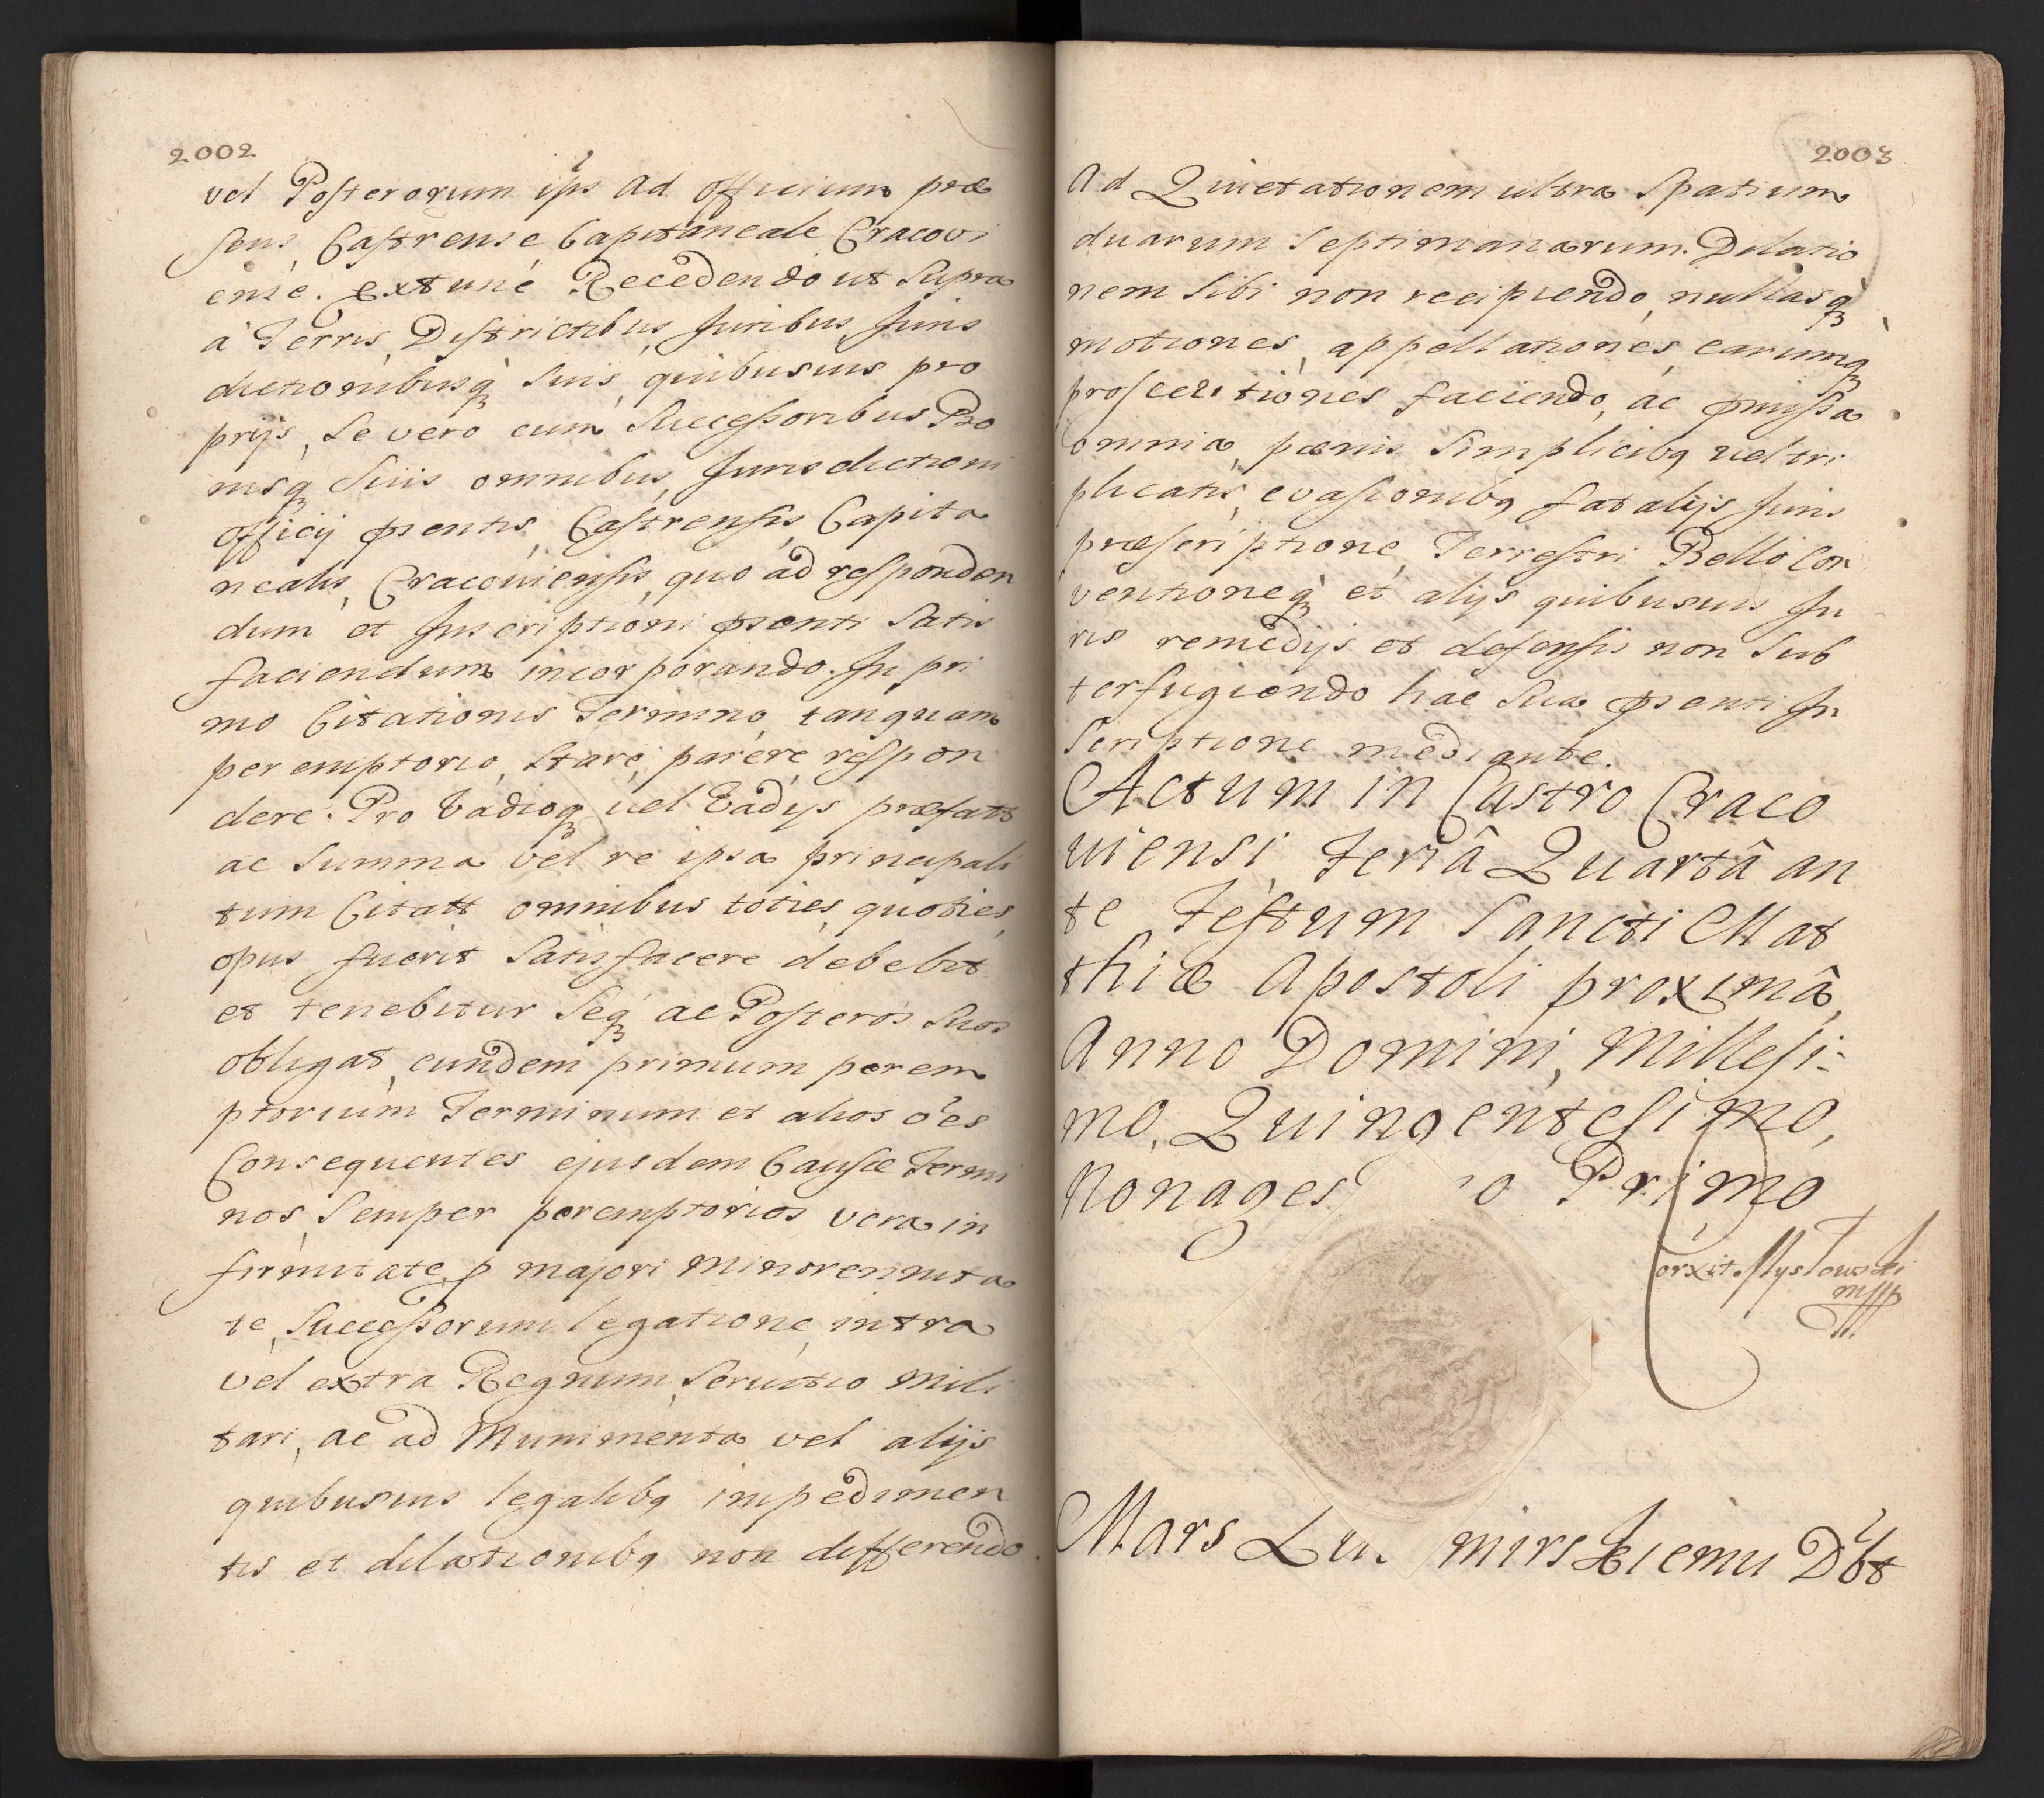 2002
vel Posterorum ips ad officium præ
sens Castrense Capitaneale Cracovi
ense. Extunc Recedendo ut supra
à Terris, Districtibus, Juribus Juris
dictionibusq suis, quibusuis pro
prijs, se vero cum Successoribus Bo
nisq suis omnibus, Jurisdictioni
officij pñentis, Castrensis, Capita
nealis, Cracouiensis, quo ad responden
dum et Inscriptioni pñenti satis
faciendum incorporando. In pri
mo Citationis Termino, tanquam
peremptorio, stare, parere, respon
dere. Pro Vadioq uel Vadijs præfatt
ac Summa vel re ipsa principali
tum Citatt omnibus toties, quoties,
opus fuerit satisfacere debebit
et tenebitur seq ac Posteros suos
obligat, eundem primum perem
ptorium Terminum et alios oẽs
Consequentes ejusdem Causæ Termi
nos, semper peremptorios vera in
firmitate, p majori minorennita
te, Successorum legatione, intra
vel extra Regnum, seruitio mili
tari, ac ad Munimenta vel alijs
quibusuis legalibq impedimen
tis et dilationibq non differendo.
2003
Ad Quietationem ultra spatium
duarum septimanarum. Dilatio
nem sibi non recipiendo, nullasq
motiones, appellationes, earumq
prosecutiones faciendo, ac pmissa
omnia, pænis simplicibq uel tri
plicatis, evasionibq fatalijs Juris
præscriptione, Terrestri Bello Con
ventioneq et alijs quibusuis Ju
ris remedijs et defensis non sub
terfugiendo hac sua pñenti In
scriptione mediante.
Actum in Castro Craco
uiensi, Feriâ Quartâ an
te Festum Sancti Mat
thiæ Apostoli proximâ,
Anno Domini, Millesi:
mo, Quingentesimo,
Nonages o Primo
mpp
Mars